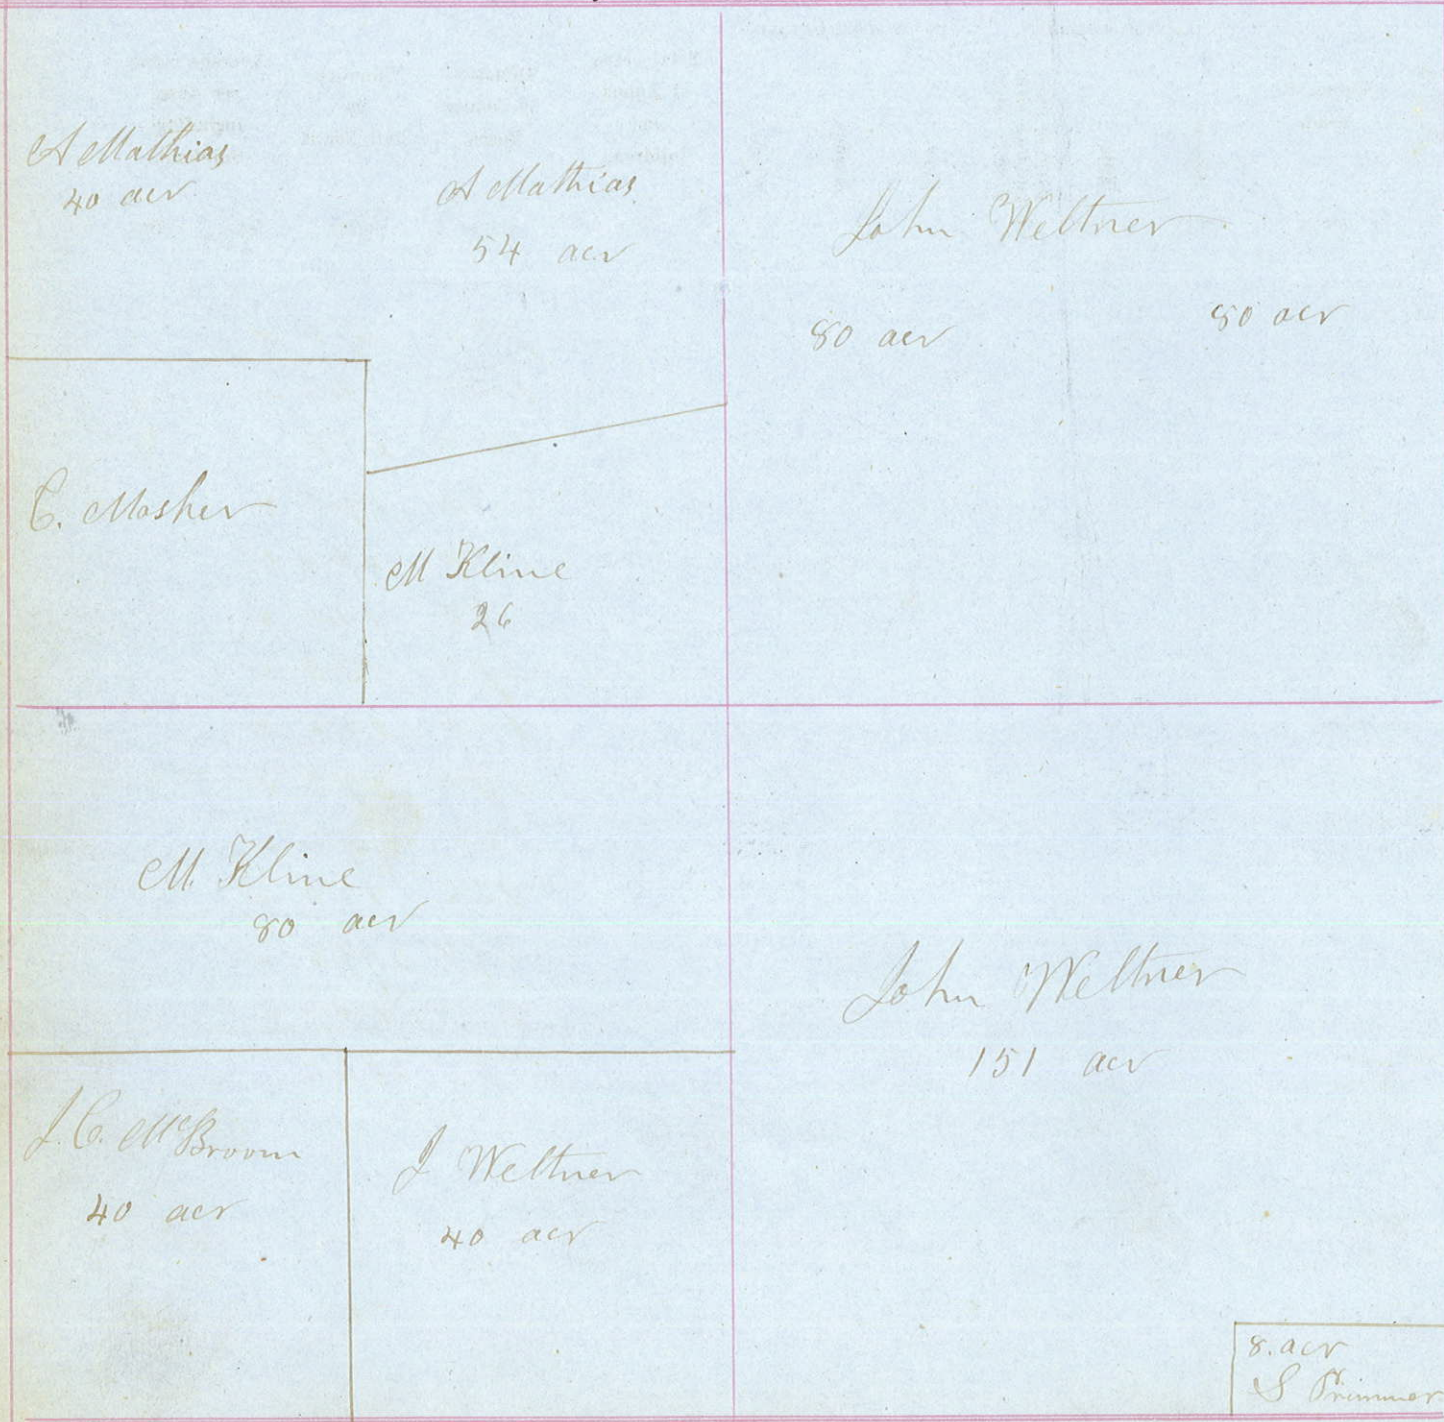 A Mathias
40 acr
A Mathias
54 acr
John Weltner
80 acr
80 acr
C. Mosher
M Kline
26
M. Kline
80 acr
John Weltner
151 acr
J. C. McBroom
40 acr
J Weltner
40 acr
8. acr
S Primmer